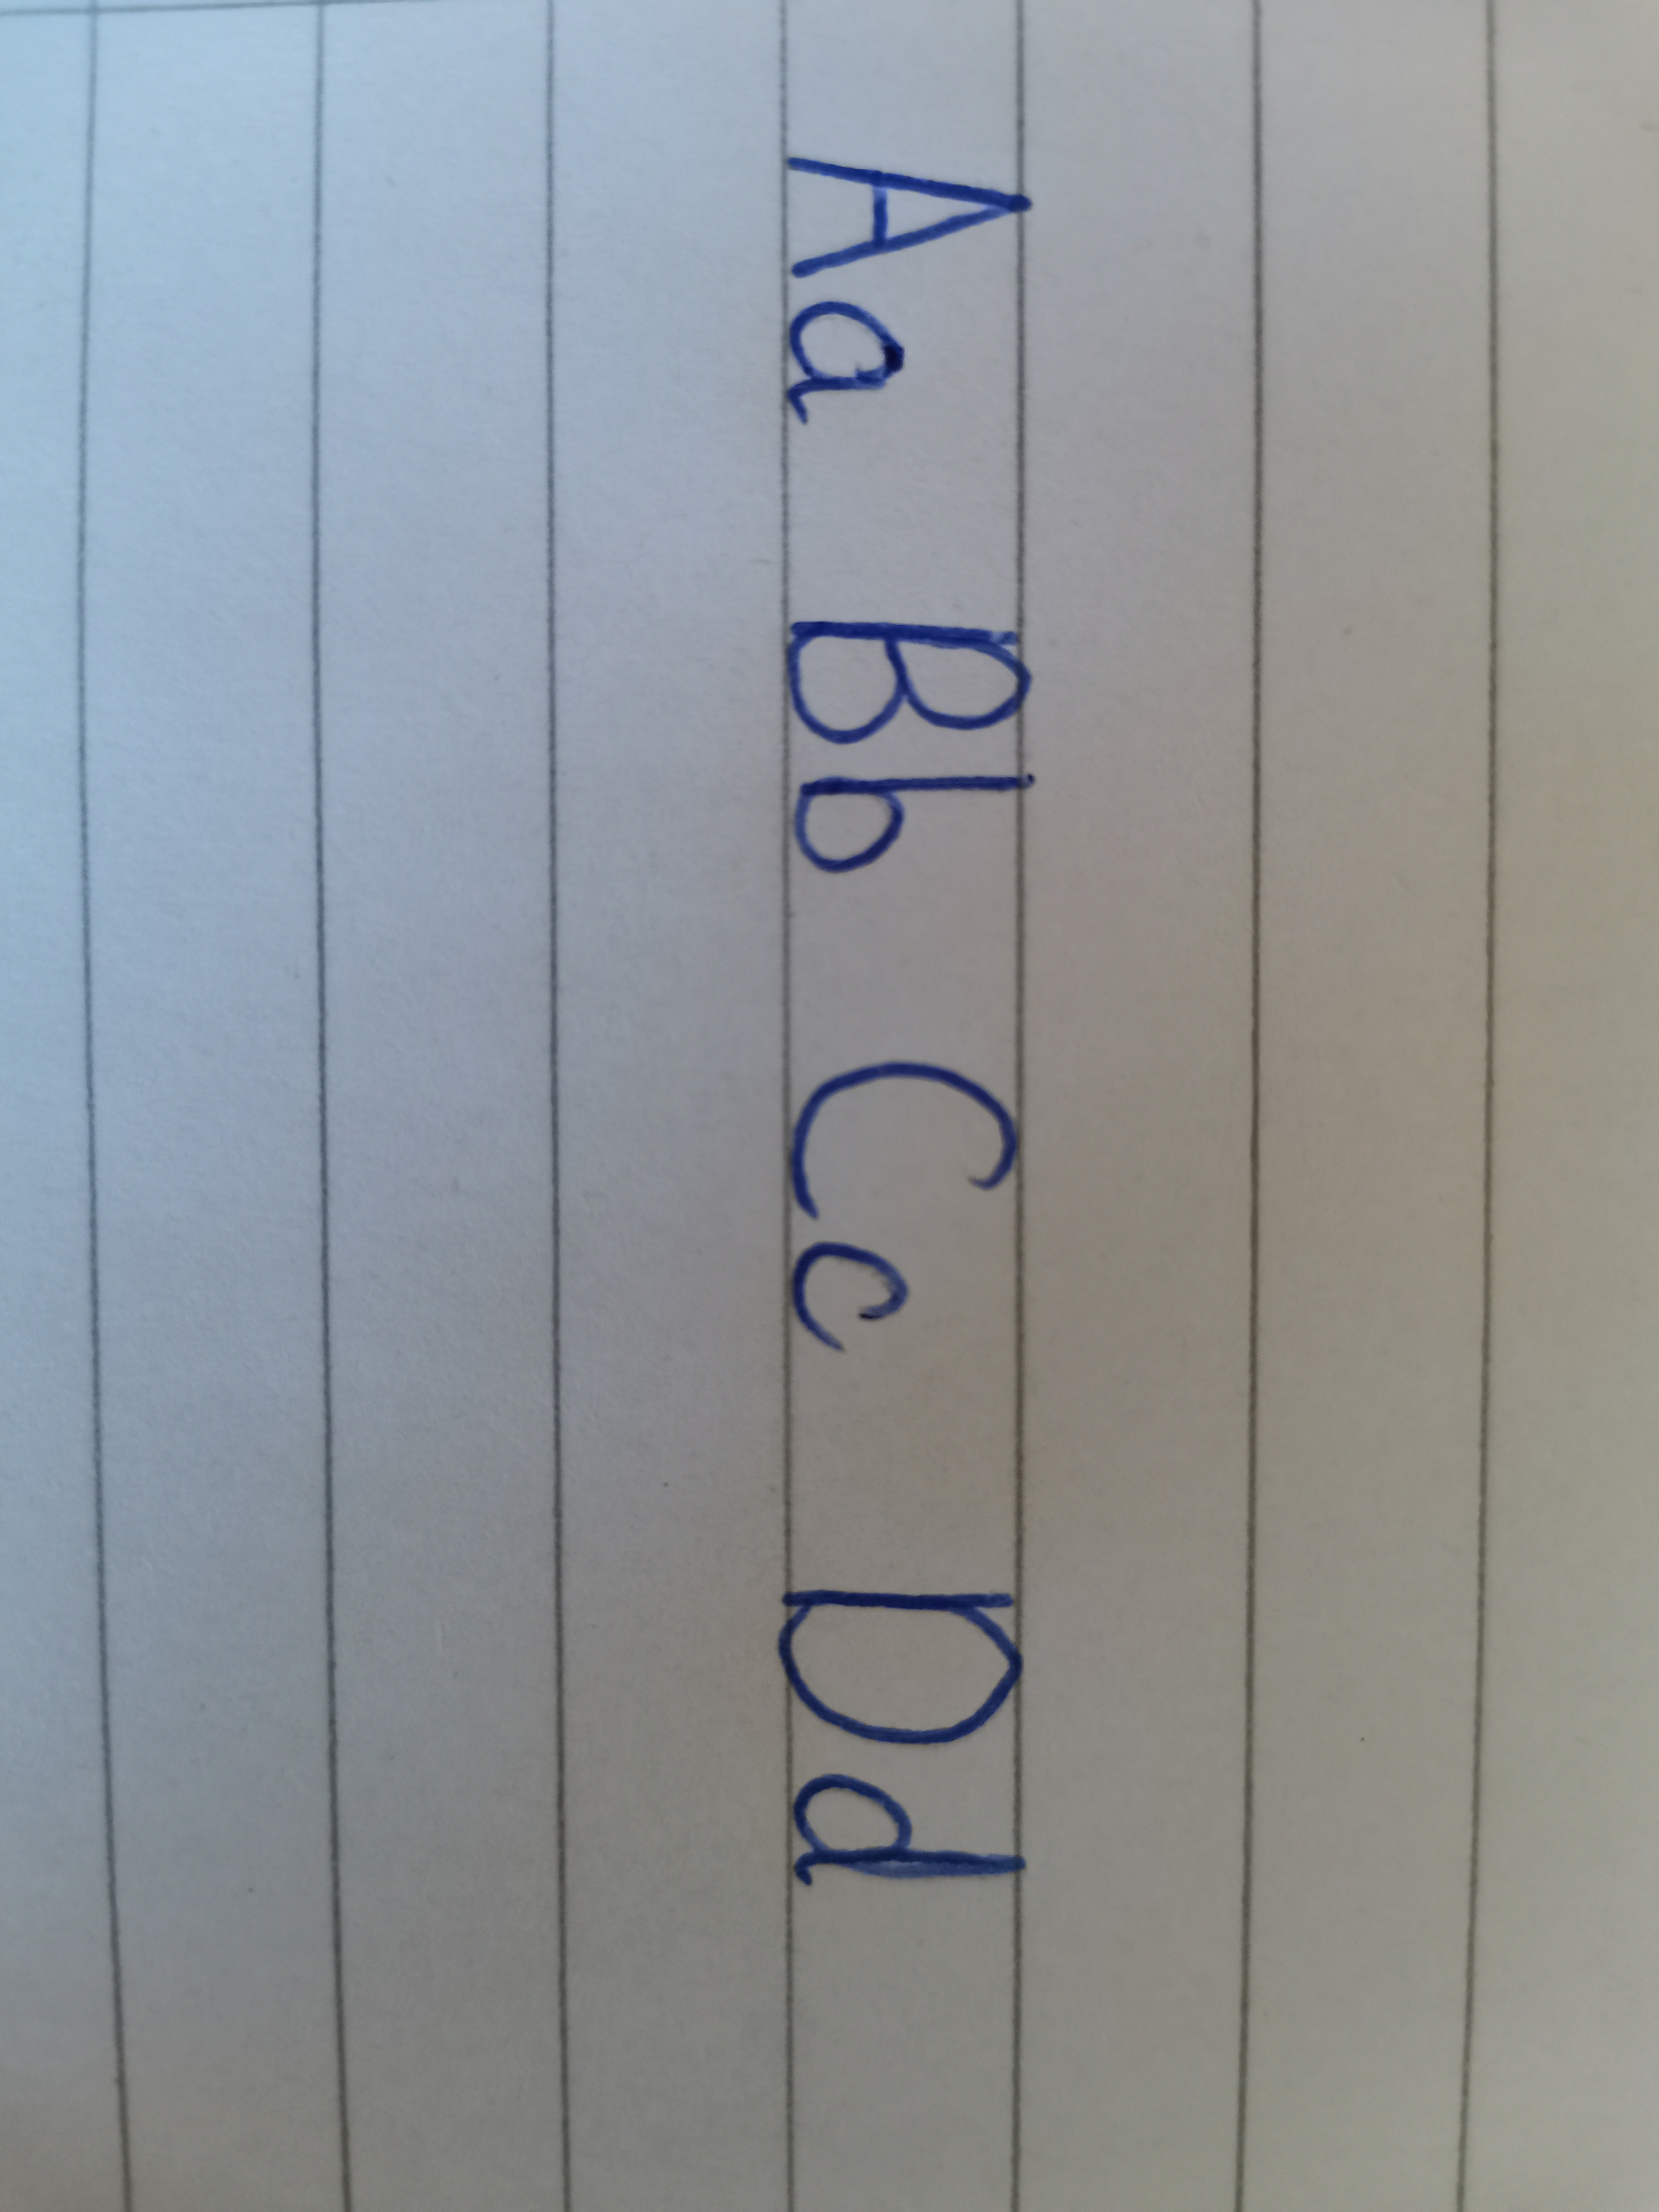 Aa Bb Cc Dd